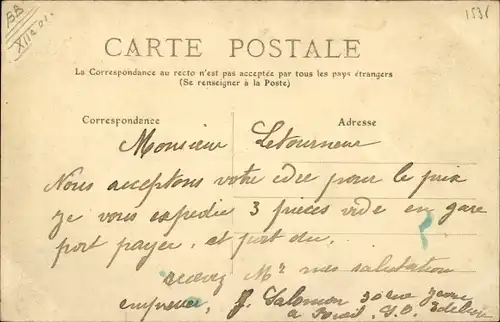 BB
XIIe 01.
CARTE POSTALE
La Correspondance au recto n'est pas acceptée par tous les pays étrangers
(Se renseigner à la Poste)
Correspondance
Adresse
Monsieur Letourneur
Nous acceptons votre idee pour le prix
je vous expedie 3 pieces vide en gare
port payer, et port du.
recevez Mr mes salutation
empressée J. Salomon 30 rue
a